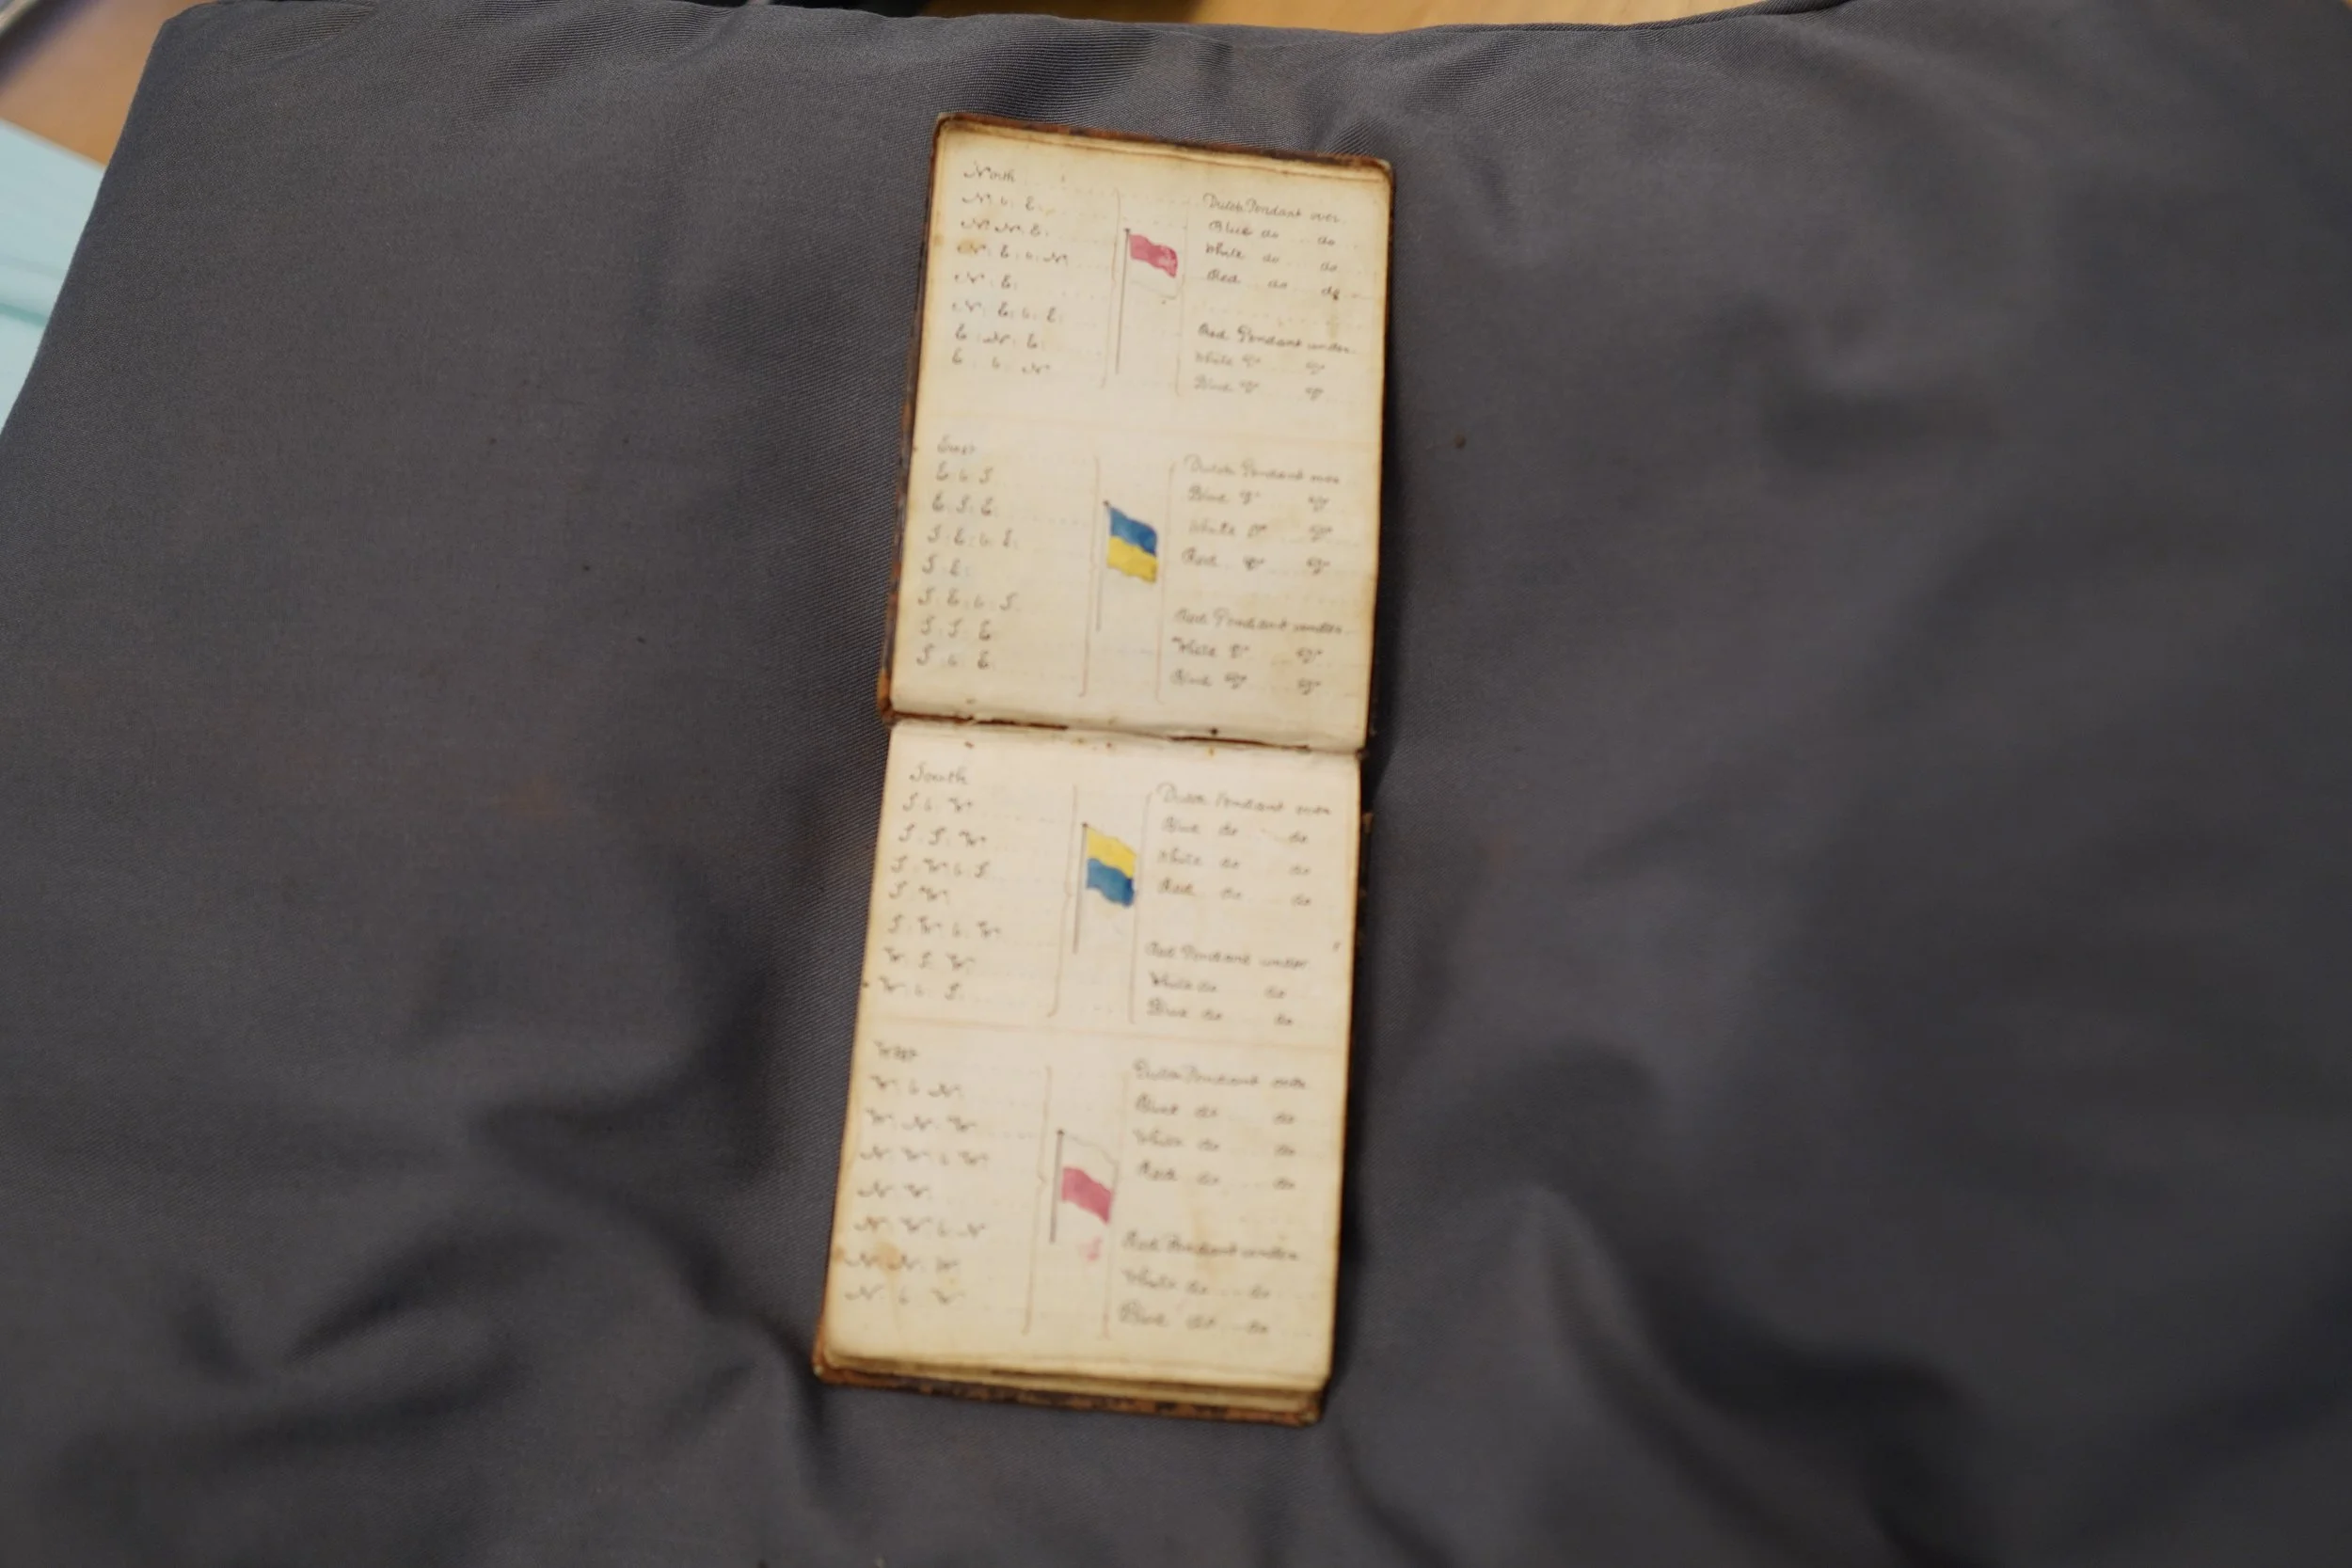 North
N. b. E.
N. N. E.
N. E. b. N
N. E.
N. E. b. E.
E. N. E.
E. b. N
Dutch Pendant over
Blue do do
White do do
Red do do
Red Pendant under
White Do Do
Blue Do Do
East
E. b. S.
E. S. E.
S. E. b. E.
S. E.
S. E. b. S.
S. S. E.
S. b. E.
Dutch Pendant over
Blue Do Do
White Do Do
Red Do Do
Red Pendant under
White Do Do
Blue Do Do
South
S. b. W
S. S. W
S. W. b. S
S. W.
S. W. b. W
W. S. W.
W. b. S.
Dutch Pendant over
Blue do do
White do do
Red do do
Red Pendant under
White do do
Blue do do
West
W. b. N.
W. N. W
N. W. b. W
N. W.
N. W. b. N
N. N. W
N. b. W
Dutch Pendant over
Blue do do
White do do
Red do do
Red Pendant under
White do do
Blue do do